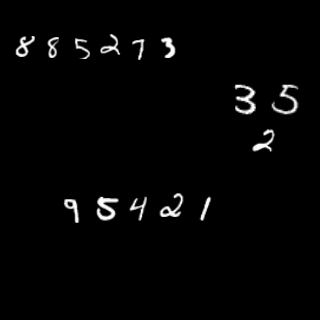 885273
35
2
95421